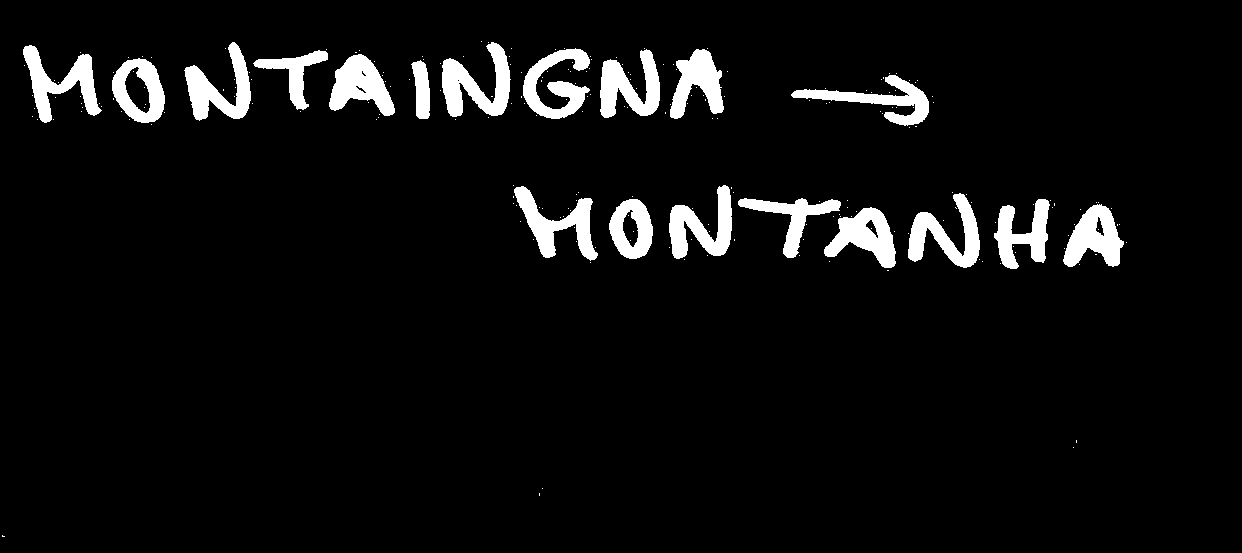 MONTAINGNA →
MONTANHA